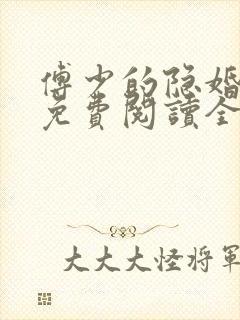 傅少的隐婚
免費閱讀全
大大大怪将軍